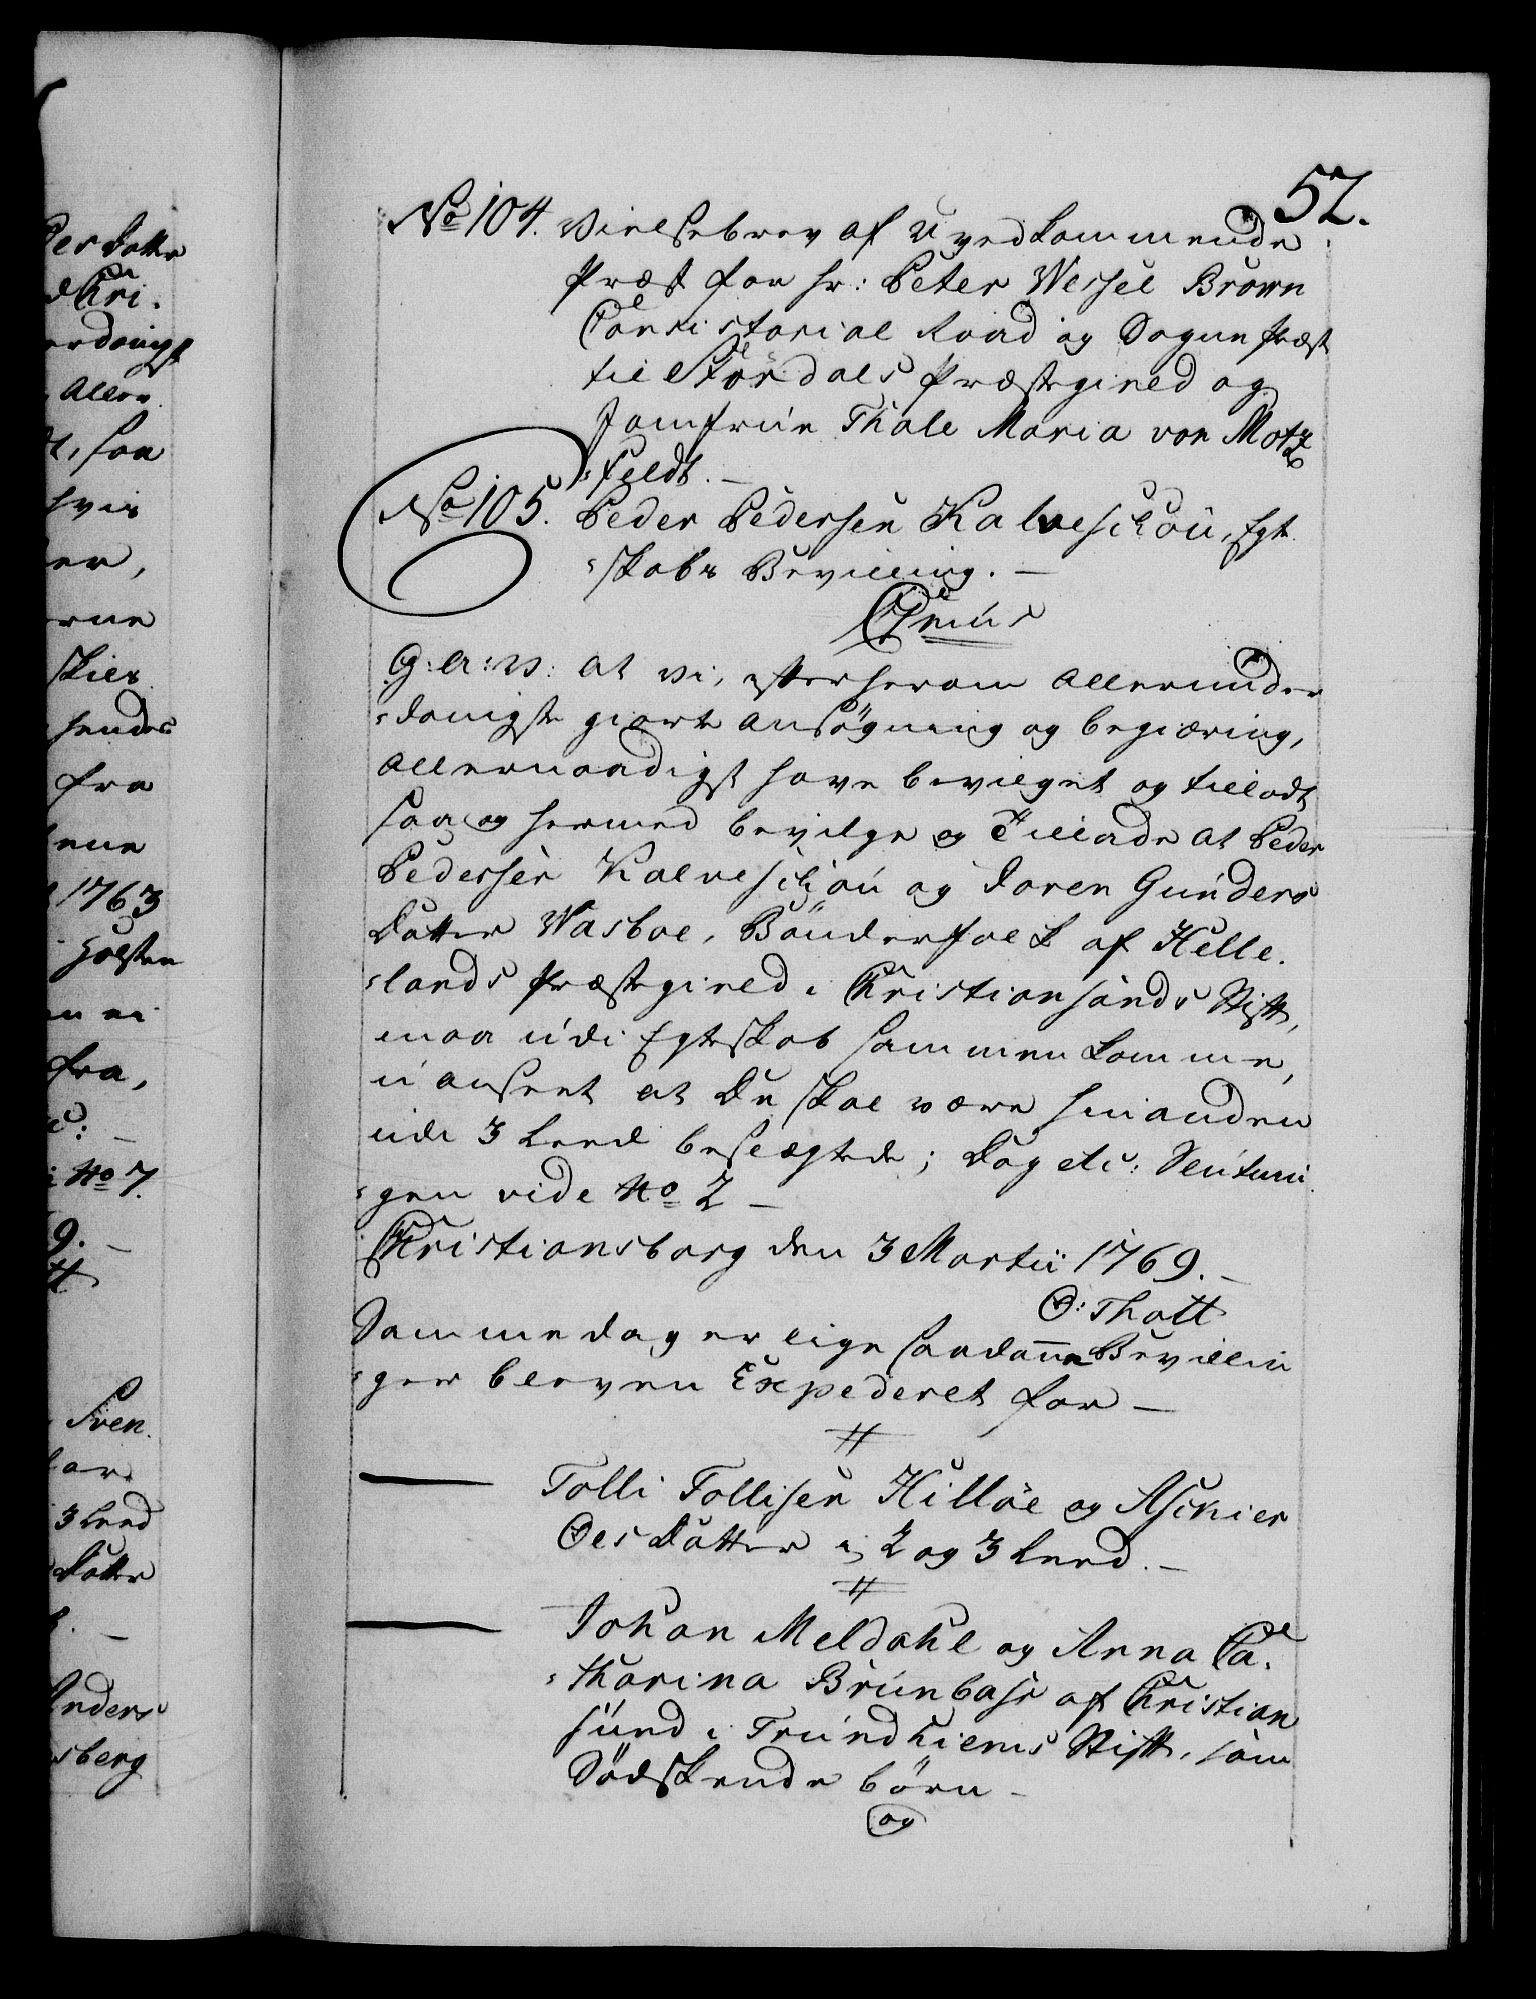 52.
No 104. Vielsebrev af Uvedkommende
Præst for Hr: Peter Wessel Brown
Consistorial Raad og Sogne Præst
til Størdals Præstegield og
Jomfrue Thale Maria von Motz
=feldt. —
No 105. Peder Pedersen Kalveschou, Egte
=skabs Bevilling. —
C 7mus
G: A: V: at Vi, efter herom allerunder
=danigst giorte Ansøgning og begiæring,
allernaadigst have bevilget og tilladt
saa og hermed bevilge og Tillade at Peder
Pedersen Kalveschou og Karen Gunders
Datter Wasboe, Bønderfolk af Helle=
=lands Præstegield i Christiansands Stift,
maa udi Egteskab sammen komme,
uanseet at de skal være hinanden
udi 3 Leed beslægtede; Dog etc: Slutnin
=gen vide No 2 —
Christiansborg den 3 Martii 1769. —
O: Thott
Samme dag er lige saadanne Bevillin
=ger bleven Expederet for —
//
— Tolli Tollisen Hilløe og Aschier
Oes Datter i 2 og 3 Leed. —
//
— Johan Meldahl og Anna Ca=
=tharina Brunbasse af Christian
sund i Trundhiems Stift, som
Sødskende børn —
og
Des datter
Chri=
erdanigst
Aller
saa
hvis
er,
erne
skier
hendes
fra
ene
1763
Holsten
ei
fra,
c: —
No 7.
9. —
tt
Sven
3 Leed
Datter
—
Anders
sberg